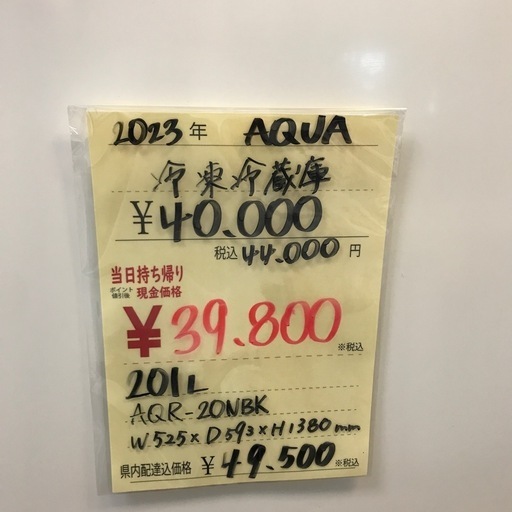 2023年 AQUA
冷凍冷蔵庫
¥40.000
税込44.000円
当日持ち帰り
ポイント値引後 現金価格
¥39.800 ※税込
201L
AQR-20NBK
W525×D593×H1380mm
県内配達込価格 ¥49.500 ※税込